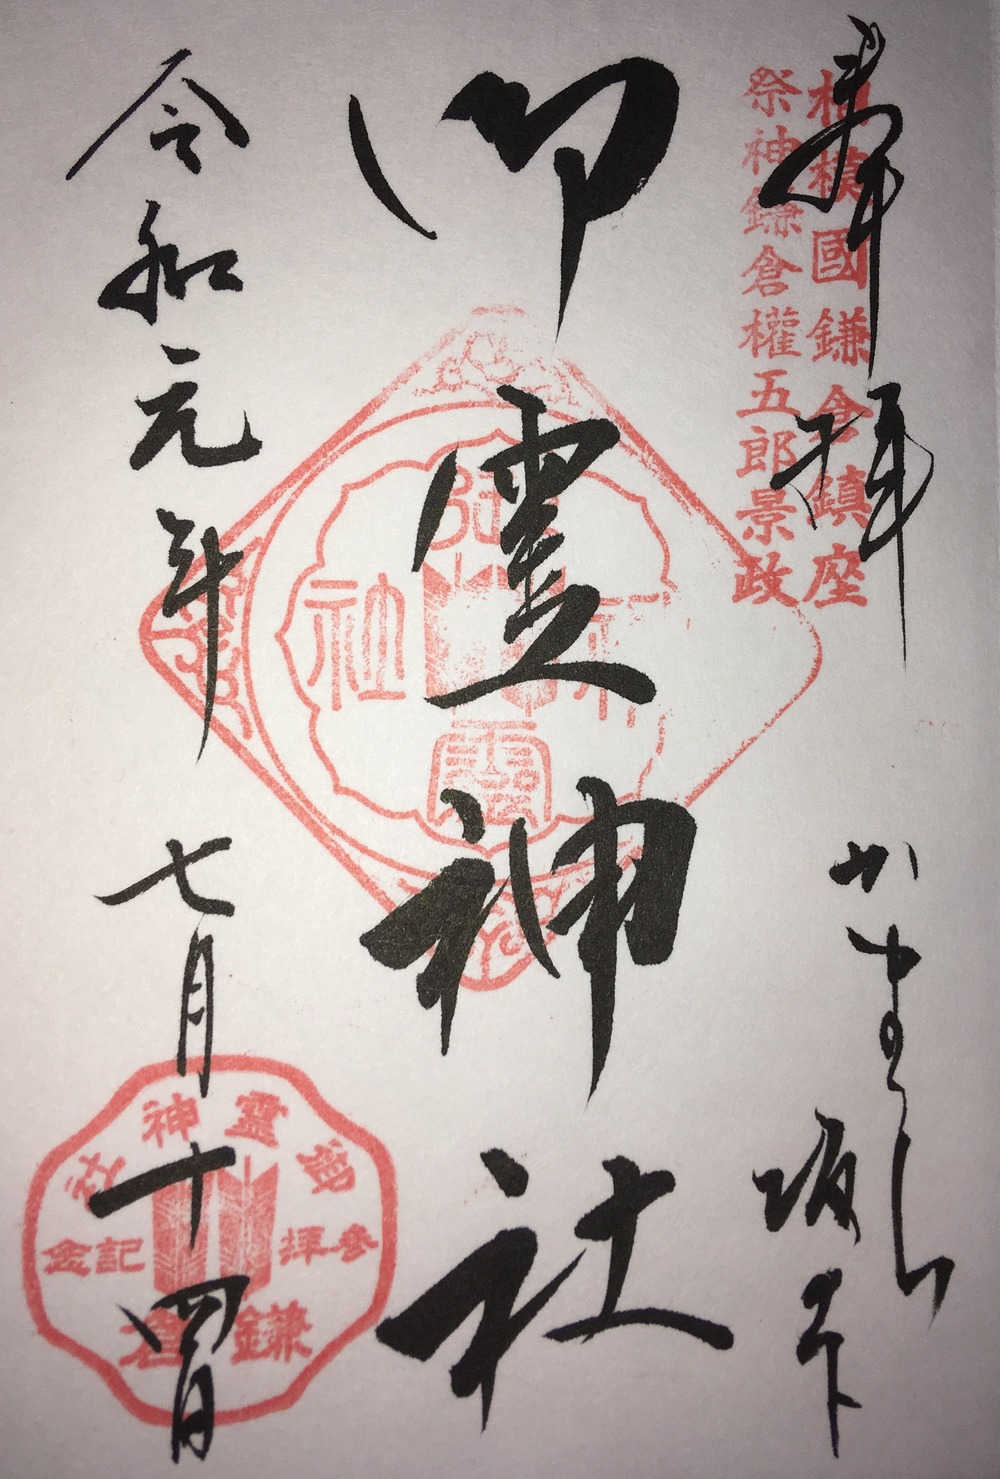 奉拝
かまくら坂ノ下
相模國鎌倉鎮座
祭神鎌倉權五郎景政
御霊神社
令和元年七月十四日
御靈神社
御靈神社
参拝記念
鎌倉